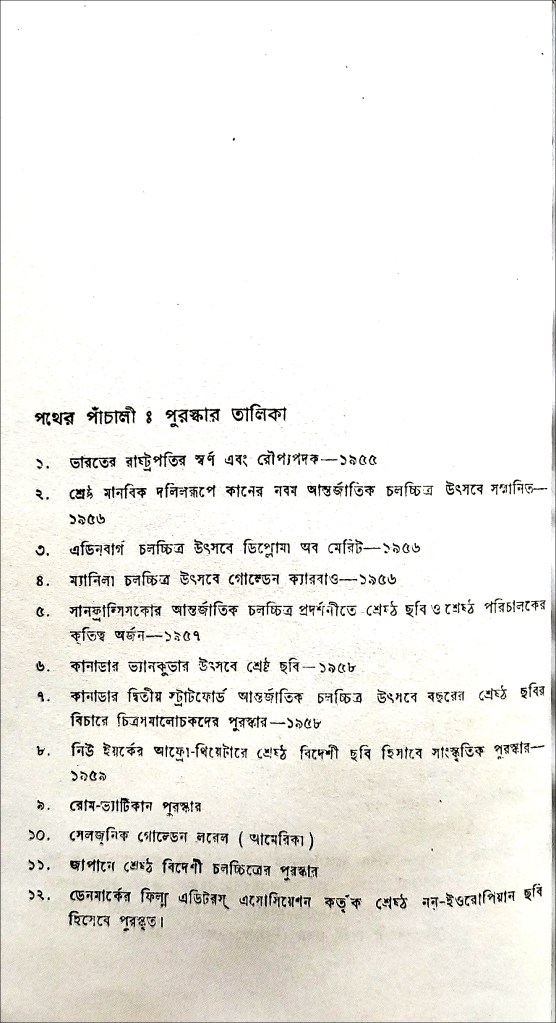 পথের পাঁচালী : পুরস্কার তালিকা
১. ভারতের রাষ্ট্রপতির স্বর্ণ এবং রৌপ্যপদক—১৯৫৫
২. শ্রেষ্ঠ মানবিক দলিলরূপে কানের নবম আন্তর্জাতিক চলচ্চিত্র উৎসবে সম্মানিত—
১৯৫৬
৩. এডিনবার্গ চলচ্চিত্র উৎসবে ডিপ্লোমা অব মেরিট—১৯৫৬
৪. ম্যানিলা চলচ্চিত্র উৎসবে গোল্ডেন ক্যারবাও—১৯৫৬
৫. সানফ্রান্সিসকোর আন্তর্জাতিক চলচ্চিত্র প্রদর্শনীতে শ্রেষ্ঠ ছবি ও শ্রেষ্ঠ পরিচালকের
কৃতিত্ব অর্জন—১৯৫৭
৬. কানাডার ভ্যানকুভার উৎসবে শ্রেষ্ঠ ছবি—১৯৫৮
৭. কানাডার দ্বিতীয় স্ট্রাটফোর্ড আন্তর্জাতিক চলচ্চিত্র উৎসবে বছরের শ্রেষ্ঠ ছবির
বিচারে চিত্রসমালোচকদের পুরস্কার—১৯৫৮
৮. নিউ ইয়র্কের আফ্রো-থিয়েটারে শ্রেষ্ঠ বিদেশী ছবি হিসাবে সাংস্কৃতিক পুরস্কার—
১৯৫৯
৯. রোম-ভ্যাটিকান পুরস্কার
১০. সেলজনিক গোল্ডেন লরেল ( আমেরিকা )
১১. জাপানে শ্রেষ্ঠ বিদেশী চলচ্চিত্রের পুরস্কার
১২. ডেনমার্কের ফিল্ম এডিটরস্ এসোসিয়েশন কর্তৃক শ্রেষ্ঠ নন্-ইওরোপিয়ান ছবি
হিসেবে পুরস্কৃত।